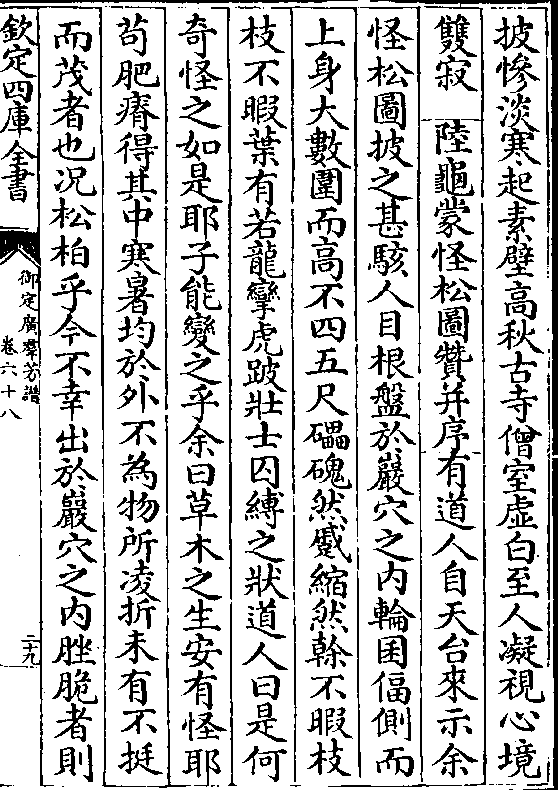 披慘淡寒起素壁高秋古寺僧室虛白至人凝視心境
雙寂　陸龜蒙怪松圖贊并序有道人自天台來示余
怪松圖披之甚駭人目根盤於巖穴之内輪囷偪側而
上身大數圍而高不四五尺礧磈然蹙縮然榦不暇枝
枝不暇葉有若龍攣虎跛壯士囚縛之狀道人曰是何
奇怪之如是耶子能變之乎余曰草木之生安有怪耶
茍肥瘠得其中寒暑均於外不為物所凌折未有不挺
而茂者也况松柏乎今不幸出於巖穴之内脞脆者則
欽定四庫全書
御定廣羣芳譜
卷六十八
二十九